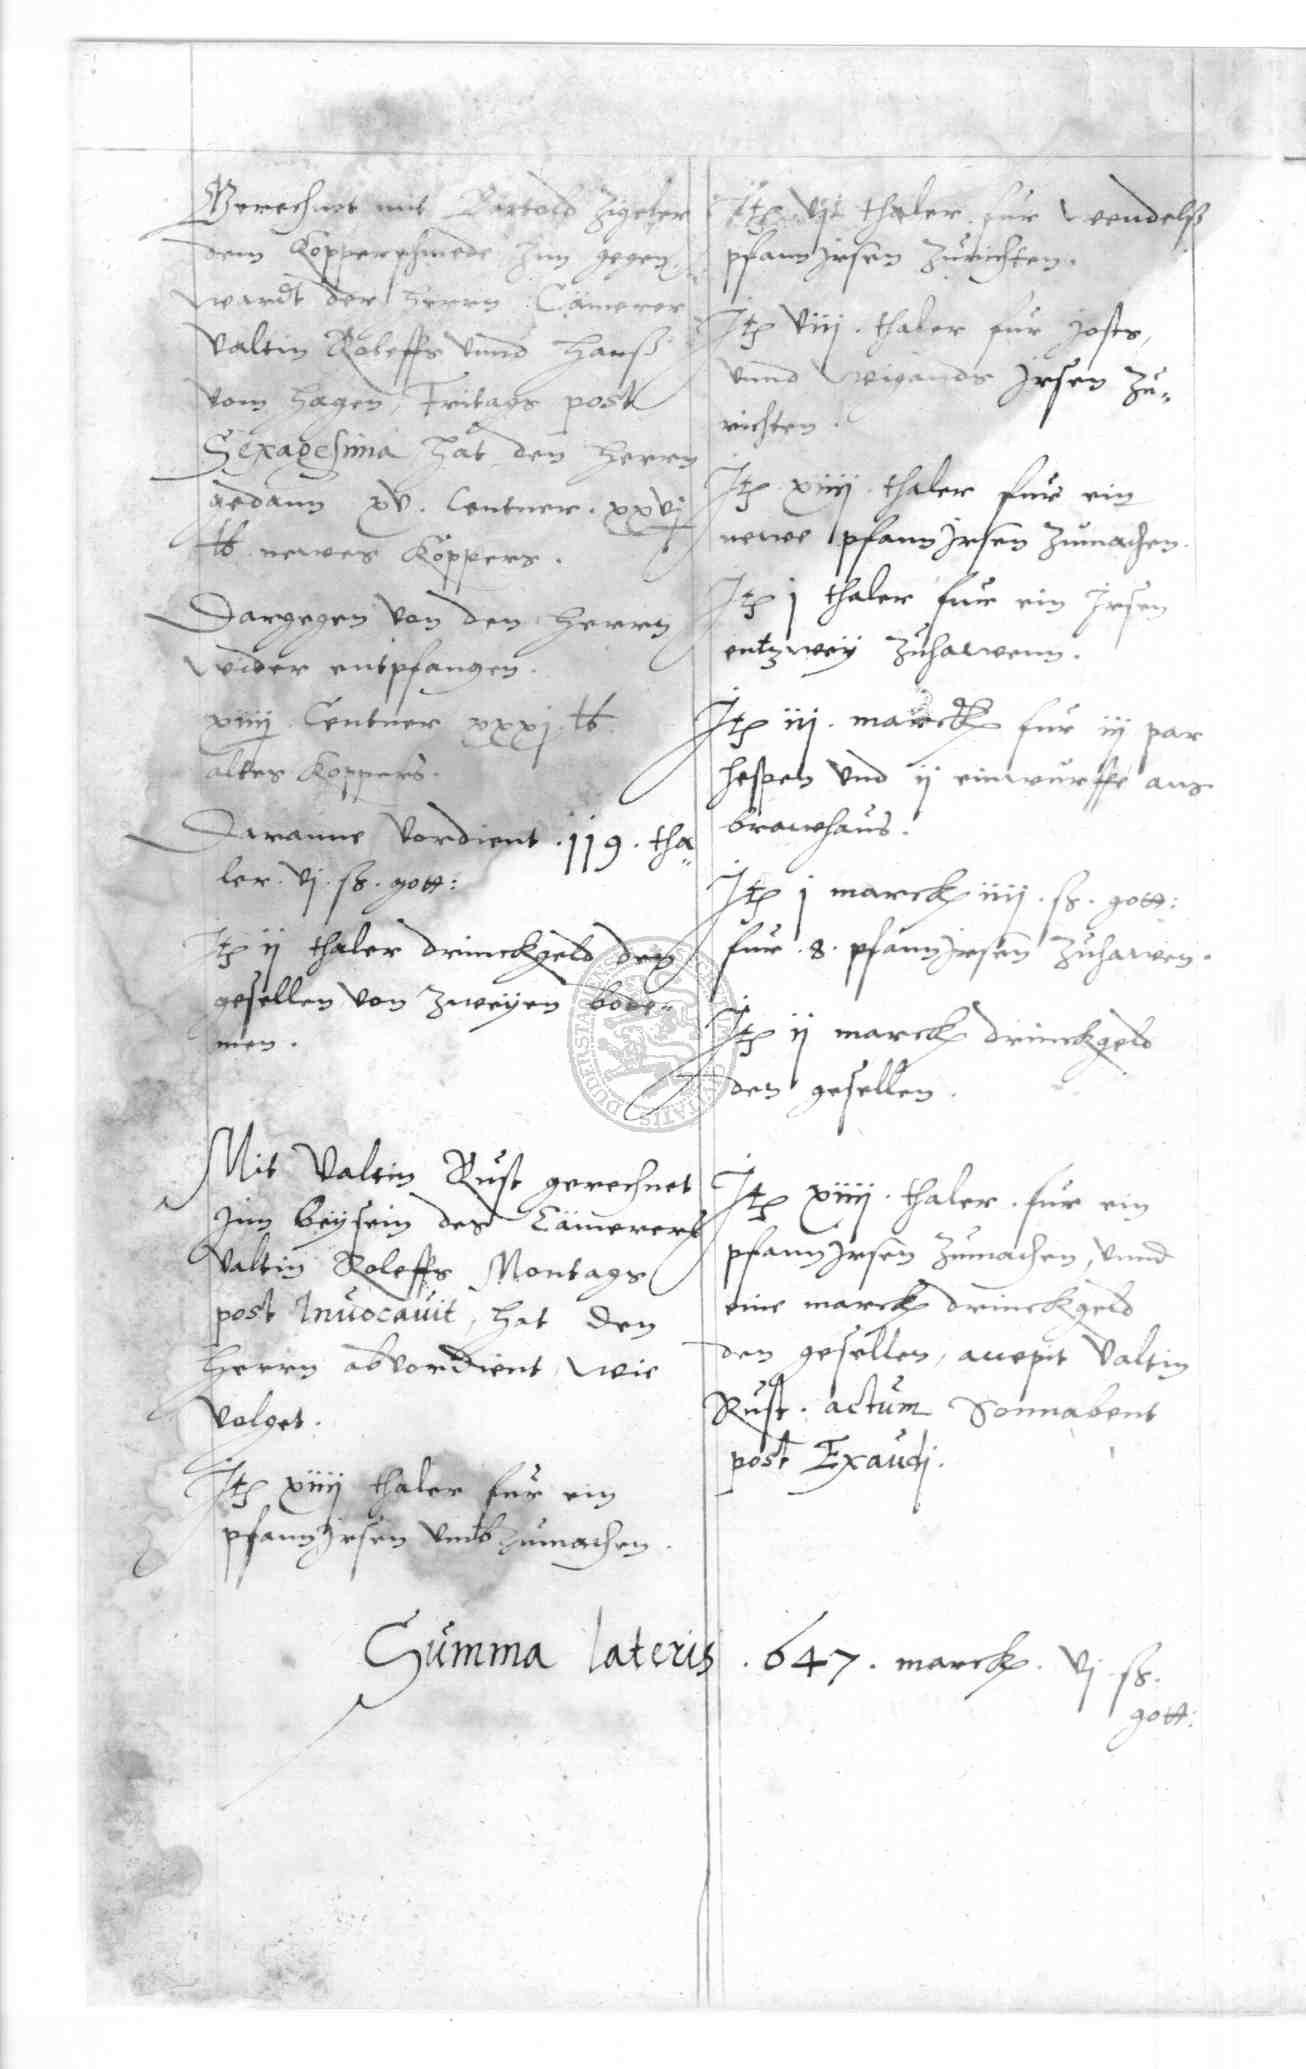 Gerechnet mit Bartold Zigeler
dem Kopperschmede Inn gegen,
wardt der herrn Cämerer
Valtin Roleffs unnd Hanß
vom Hagen, Fritags post
Sexagesima hat den herrn
gedann xv. Centner. xxvj
℔ newes Koppers.
Dargegen von den herrn
wider entpfangen.
xiiij Centner xxxj. ℔
altes Koppers.
Daranne vordient. 119. tha„
ler. vj. ß. gott:
Itē ij thaler drinckgeld den
gesellen von zweyen bode„
men.
Mit Valtin Rust gerechnet
Inn beysein des Cämerers
Valtin Roleffs Montags
post Invocavit, hat den
herrn abvordient, wie
volget.
Itē xiiij thaler fur ein
pfann Irsen umb zumachen.
Itē vij thaler. fur Wendelß
pfann Irsen Zurichten.
Itē viij. thaler fur Josts,
unnd Wigands Irsen Zu„
richten.
Itē xiiij. thaler fur ein
newe pfann Irsen Zumachen.
Itē j thaler fur ein Irsen
entzwey Zuhawenn.
Itē iij. marck fur iij par
hespen und ij einwurffe ans
brawhaus.
Itē j marck iiij. ß. gott:
fur. 8. pfann Irsen Zuhawen.
Itē ij marck drinckgeld
den gesellen.
Itē xiiij. thaler. fur ein
pfann Irsen Zumachen, unnd
eine marck drinckgeld
den gesellen, accepit Valtin
Rust. actum Sonnabent
post Exaudj.
Summa lateris. 647. marck. vj ß.
gott:
DUDERSTAT CIVITATIS